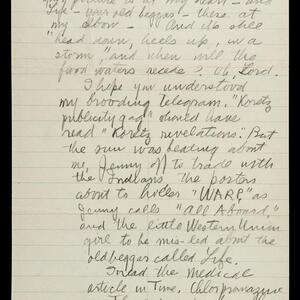 my picture is at my heart - and
"old beggar" - there at
my elbow - And it's still
"head down, heels up, in a
storm," and when will the
flood waters recede? Oh, Lord.
I hope you understood
my brooding telegram. "Koretz
publicity gag" should have
read "Koretz revelations". But
the sun was beating about
me, Jenny off to trade with
the Indians, the porters
about to holler "WARF" as
Jenny calls "All Aboard,"
and the little Western Union
girl to be mis-led about the
old beggar called Life.
I read the medical
article in Time, Chlorpromazine